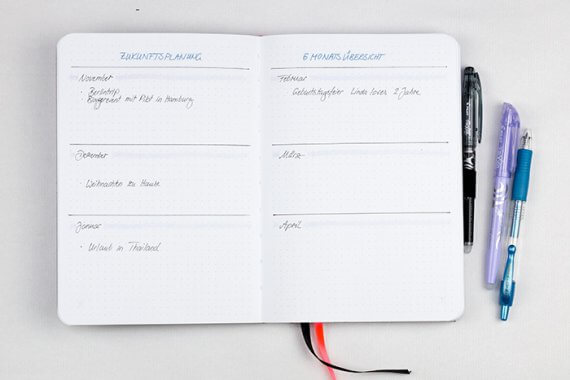 ZUKUNFTSPLANUNG
November
· Berlintrip
Blogevent mit Pilot in Hamburg
Dezember
· Weihnachten zu Hause
Januar
· Urlaub in Thailand
6 MONATSÜBERSICHT
Februar
Geburtstagsfeier Linda loves 2 Jahre
März
April